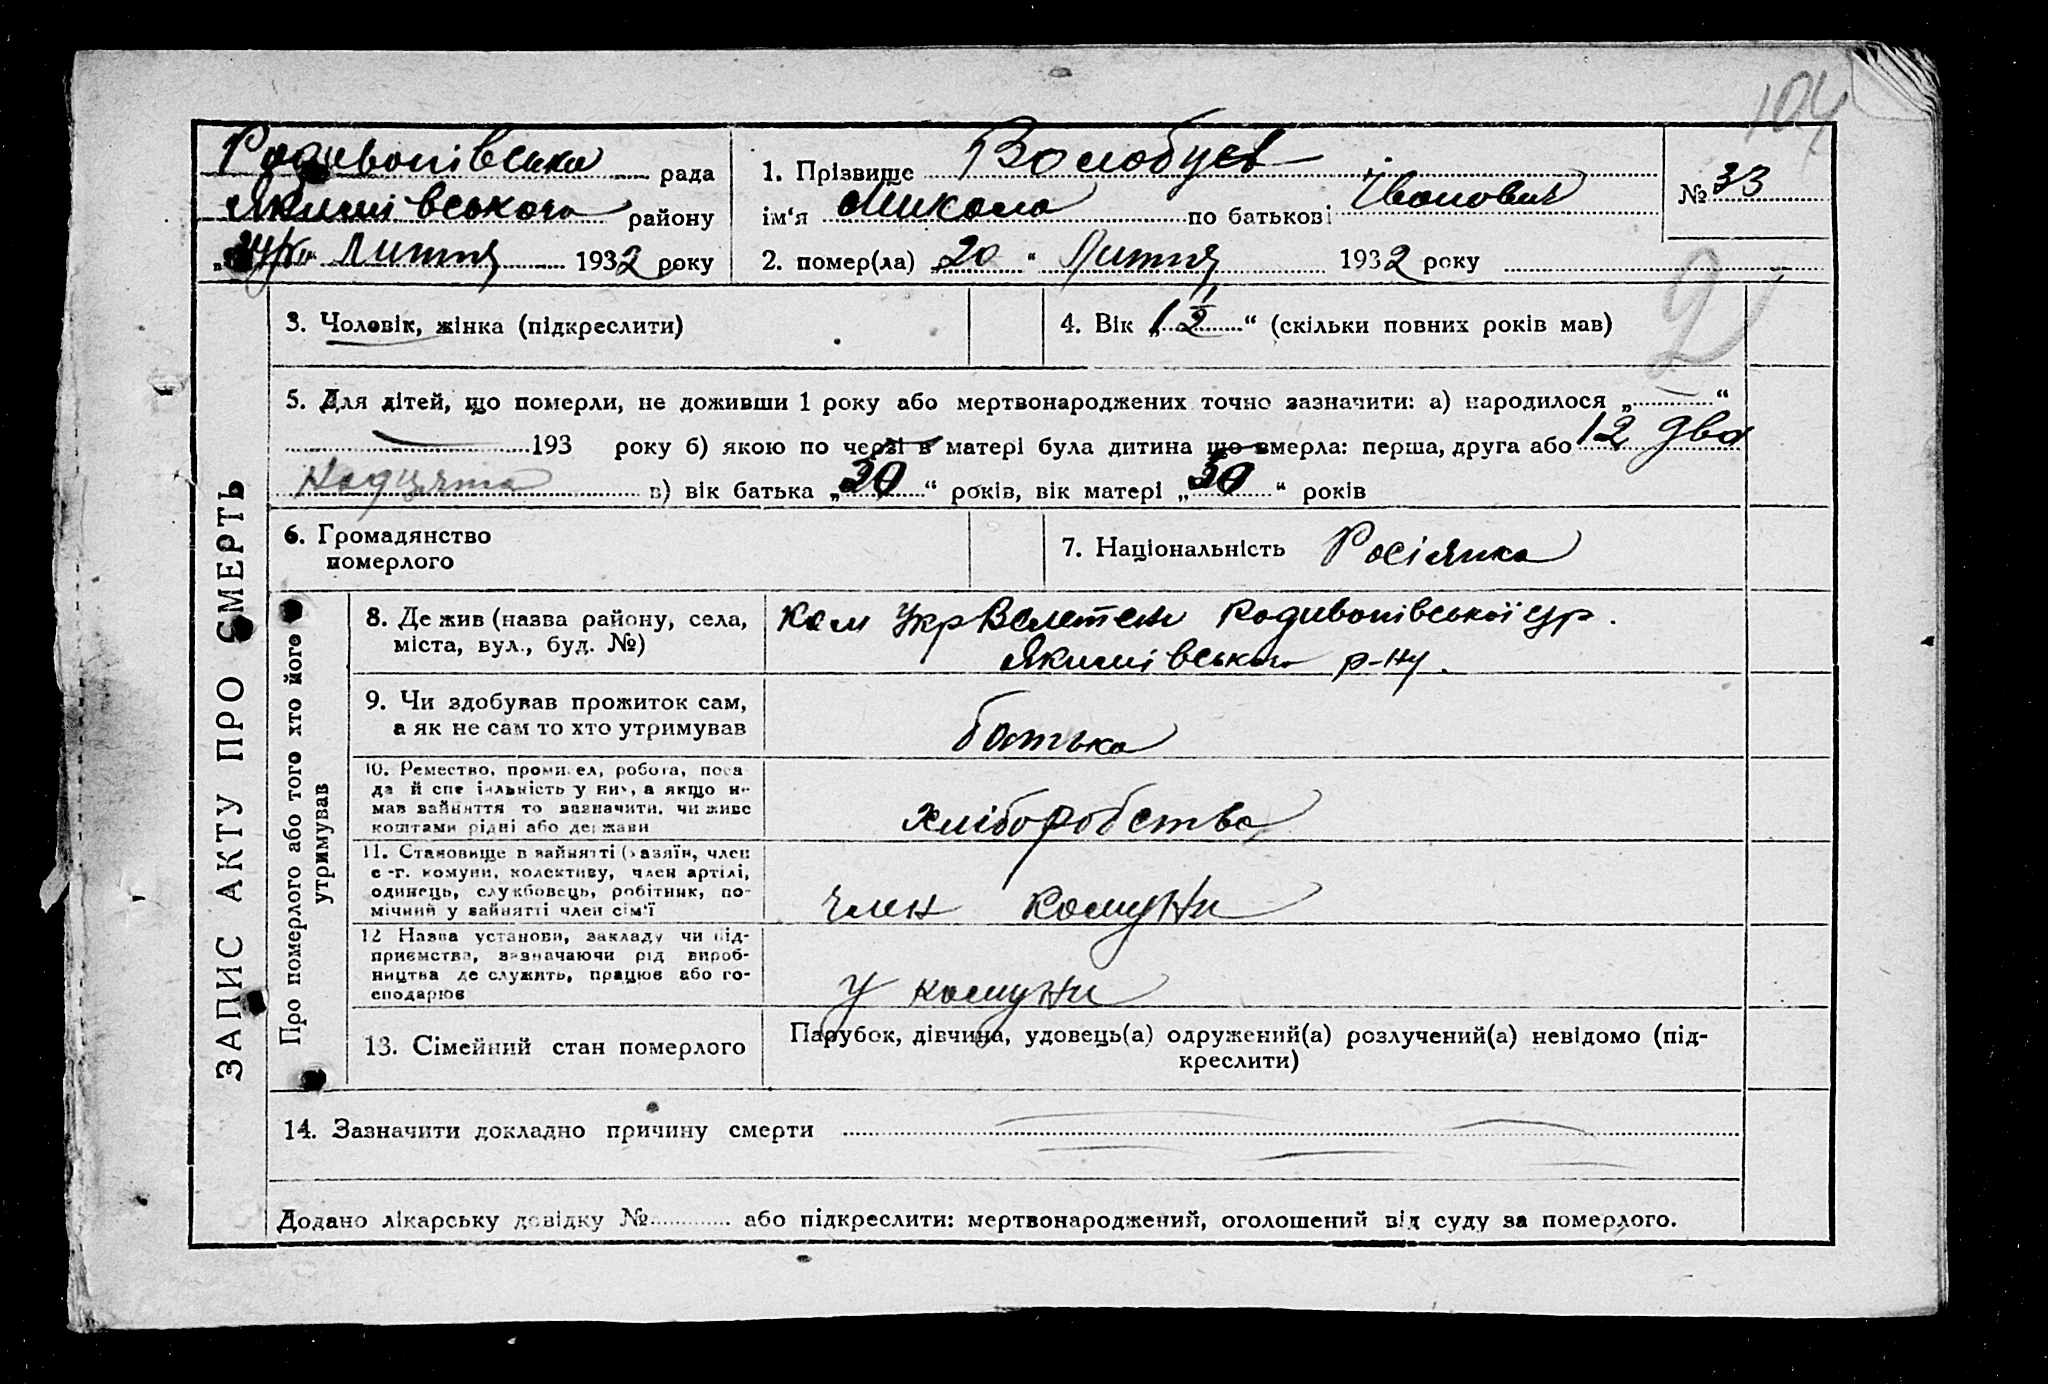 104
Родивонівська рада
Якимівського району
" Липня 1932 року
1. Прізвище Волобуєв
ім'я Микола по батькові Іванович
2. помер(ла) „20“ Липня 1932 року
№ 33
2
ЗАПИС АКТУ ПРО СМЕРТЬ
3. Чоловік, жінка (підкреслити)
4. Вік „1 1/2“ (скільки повних років мав)
5. Для дітей, що померли, не доживши 1 року або мертвонароджених точно зазначити: а) народилося „ “
193 року б) якою по черзі в матері була дитина що вмерла: перша, друга або 12 два
надцята в) вік батька „ “ років, вік матері „ “ років
6. Громадянство
померлого
7. Національність Росіянка
Про померлого або того хто його
утримував
8. Де жив (назва району, села,
міста, вул., буд. №)
Ком УкрВелетень Родивонівської с/р.
Якимівського р-ну.
9. Чи здобував прожиток сам,
а як не сам то хто утримував
батька
10. Ремество, промисел, робота, поса
да й спеціяльність у них, а якщо не
мав зайняття то зазначити, чи живе
коштами рідні або держави
хліборобство
11. Становище в зайнятті (хазяїн, член
с-г. комуни, колективу, член артілі,
одинець, службовець, робітник, по-
мічний у зайнятті член сім'ї
член комуни
12 Назва установи, закладу чи під-
приємства, зазначаючи рід вироб-
ництва де служить, працює або го-
сподарює
у комуни
13. Сімейний стан померлого
Парубок, дівчина, удовець(а) одружений(а) розлучений(а) невідомо (під-
креслити)
14. Зазначити докладно причину смерти
Додано лікарську довідку № або підкреслити: мертвонароджений, оголошений від суду за померлого.